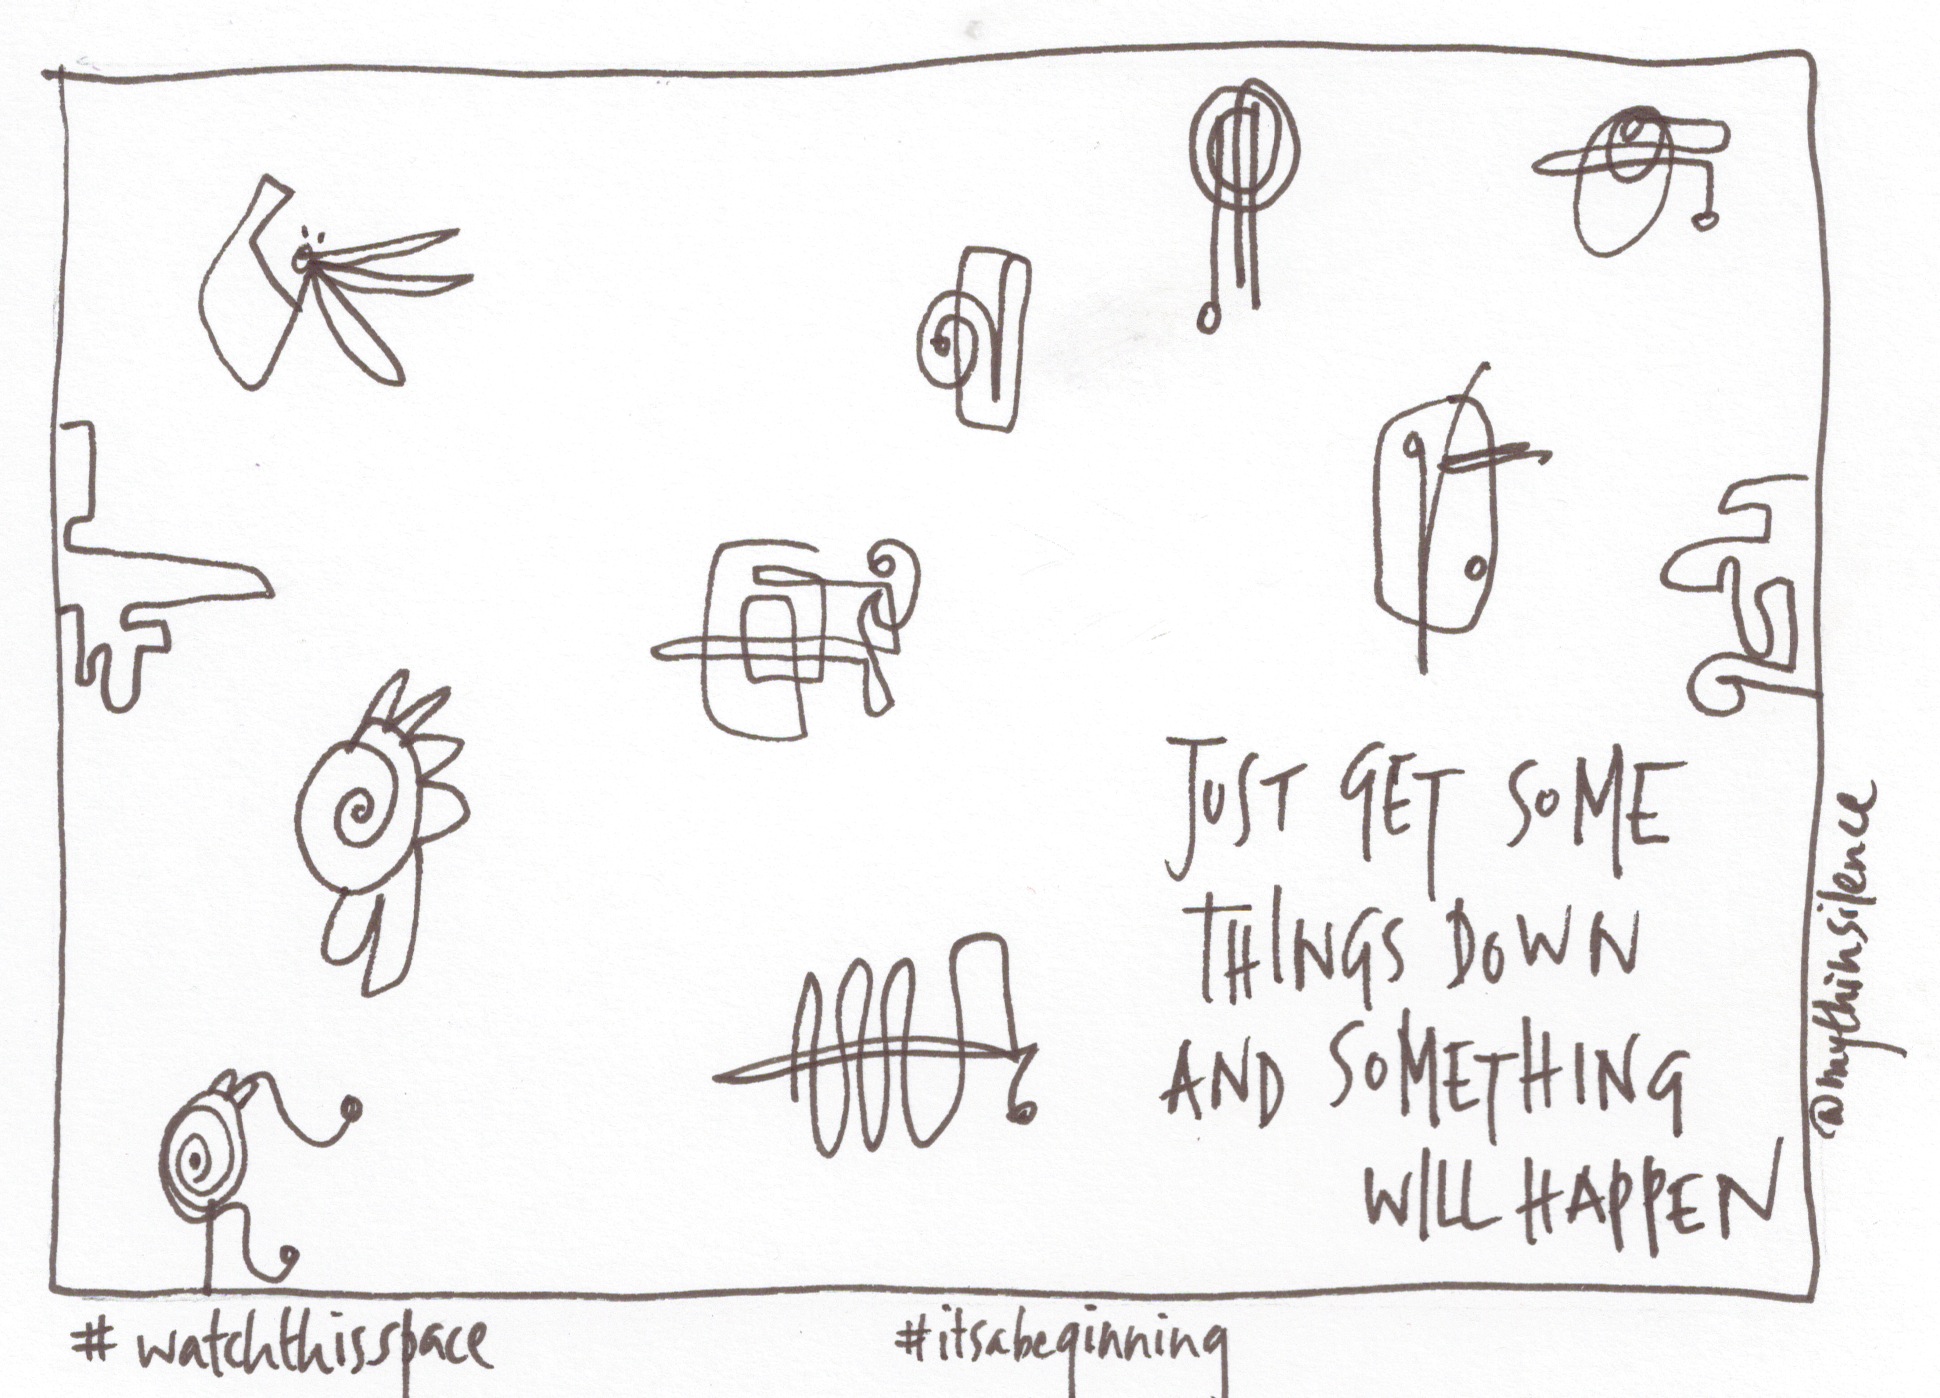 JUST GET SOME
THINGS DOWN
AND SOMETHING
WILL HAPPEN
@maythinsilence
# watchthisspace
#itsabeginning